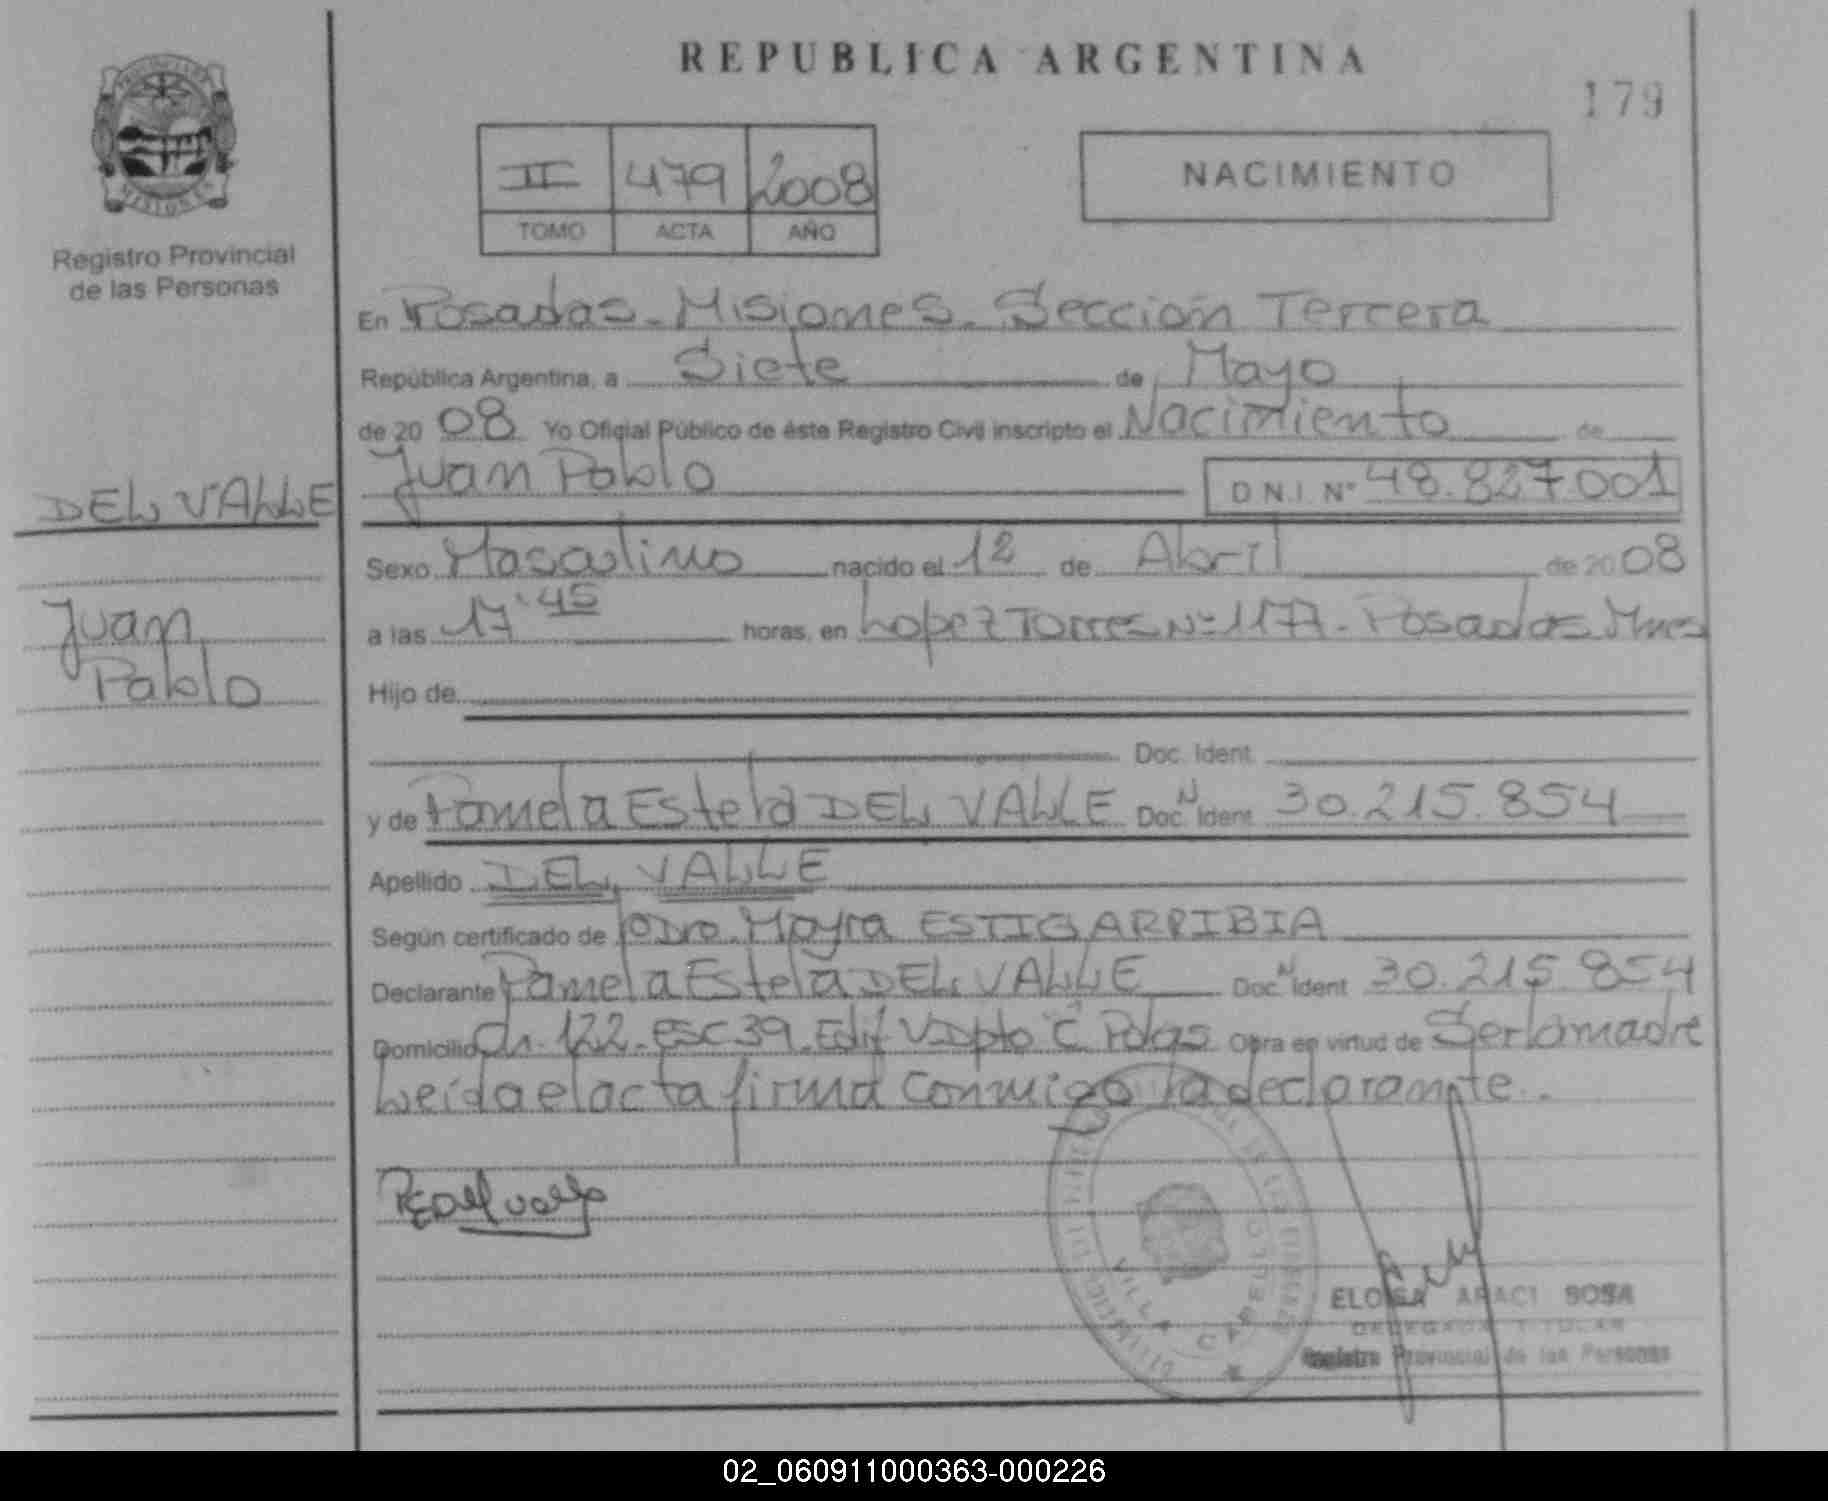 REPUBLICA ARGENTINA
179
PROVINCIA DE MISIONES
Registro Provincial
de las Personas
II 479 2008
TOMO ACTA AÑO
NACIMIENTO
En Posadas - Misiones - Sección Tercera
República Argentina, a Siete de Mayo
de 20 08 Yo Oficial Público de éste Registro Civil inscripto el Nacimiento de
Juan Pablo D.N.I. Nº 48.827.001
DEL VALLE
Juan
Pablo
Sexo Masculino nacido el 12 de Abril de 20 08
a las 17'45 horas, en Lopez Torres Nº 1177 - Posadas Mnes
Hijo de
Doc. Ident.
y de Pamela Estela DEL VALLE Doc. N Ident 30.215.854
Apellido DEL VALLE
Según certificado de Mayra ESTIGARRIBIA
Declarante Pamela Estela DEL VALLE Doc. N Ident 30.215.854
Domicilio Ch. 122 - esc 39 - Edif V Dpto "C" Pdas Obra en virtud de Ser la madre
Leída el acta firma conmigo la declarante.
VILLA CABELLO
ELOISA ARACI SOSA
DELEGADA TITULAR
Registro Provincial de las Personas
02_060911000363-000226